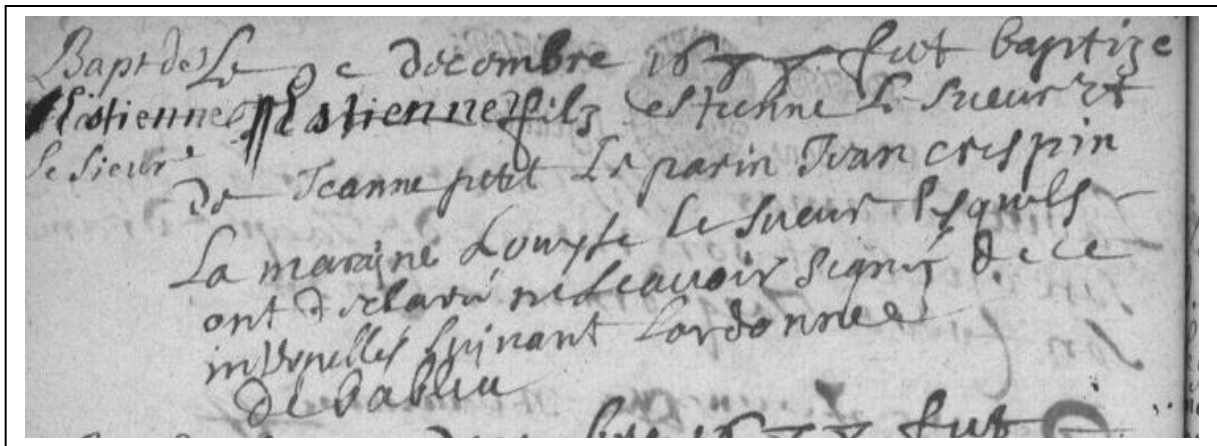 Bapt de
Estienne
le Sieur
Le 9 e decembre 1677 fut baptize
Estienne filz estienne le sueur et
de Jeanne petit Le parin Jean crespin
La maraine Louyse le sueur lesquels
ont declaré ne scavoir signer de ce
interpelles suivant lordonnee
de bablin
fut